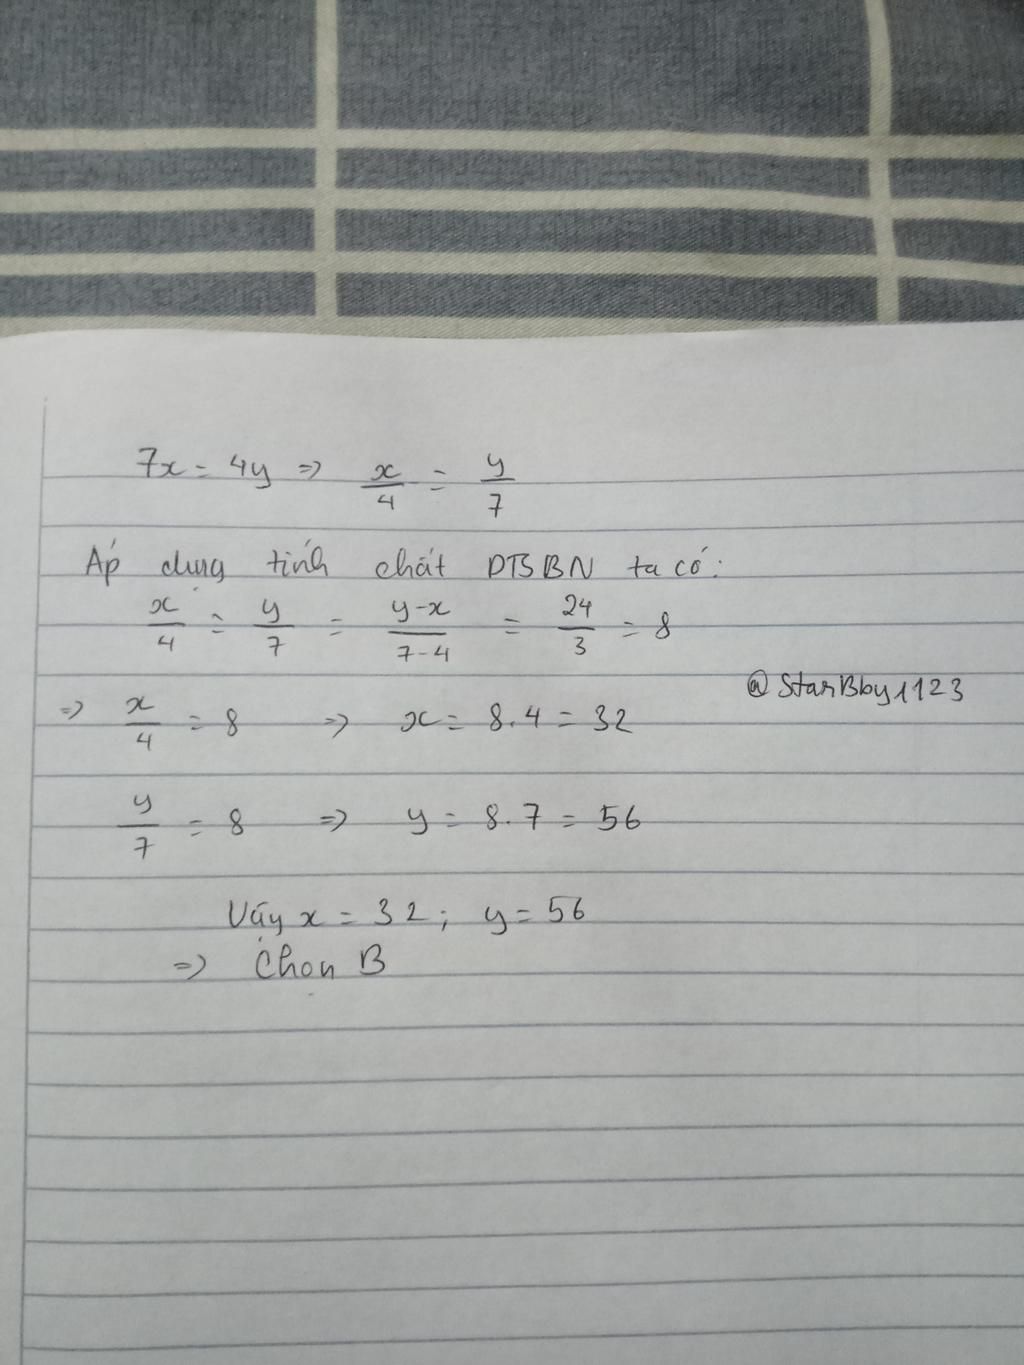 7x = 4y => x/4 = y/7
Áp dụng tính chất DTSBN ta có:
x/4 = y/7 = y-x/7-4 = 24/3 = 8
@StarBby1123
=> x/4 = 8 => x = 8.4 = 32
y/7 = 8 => y = 8.7 = 56
Vậy x = 32; y = 56
=> Chọn B